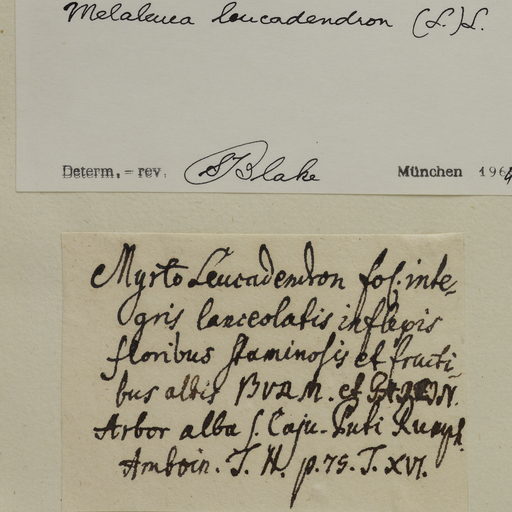 Melaleuca leucadendron (L.) L.
Determ. = rev. ST Blake München 1964
Myrto Leucadendron fol. inte-
gris lanceolatis inflexis
floribus staminosis et fructi-
bus albis BURM. et
Arbor alba s. Caju-Puti Rumph.
Amboin. T. II. p. 75. T. XVI.